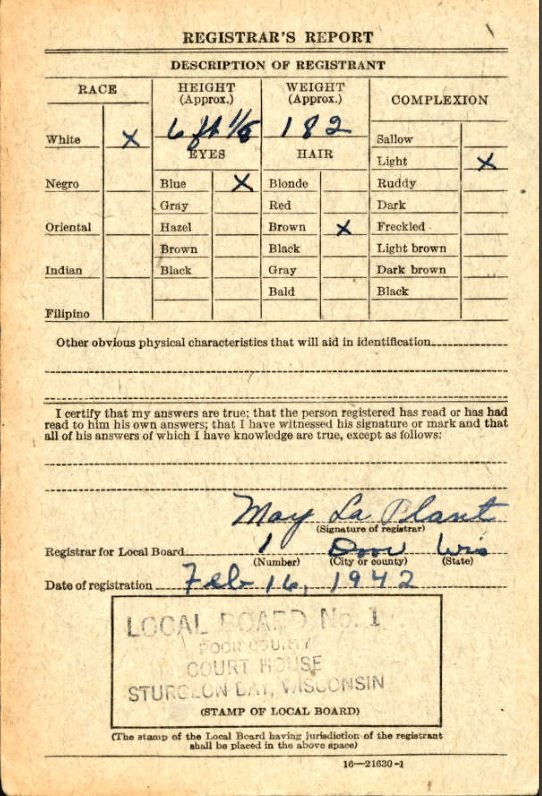 REGISTRAR'S REPORT
DESCRIPTION OF REGISTRANT
RACE
HEIGHT
(Approx.)
WEIGHT
(Approx.)
COMPLEXION
6 ft 1/8
182
White X
EYES
HAIR
Sallow
Light X
Negro
Blue X
Blonde
Ruddy
Gray
Red
Dark
Oriental
Hazel
Brown X
Freckled
Brown
Black
Light brown
Indian
Black
Gray
Dark brown
Bald
Black
Filipino
Other obvious physical characteristics that will aid in identification
I certify that my answers are true; that the person registered has read or has had
read to him his own answers; that I have witnessed his signature or mark and that
all of his answers of which I have knowledge are true, except as follows:
May La Plant
(Signature of registrar)
Registrar for Local Board 1 Door Wis
(Number) (City or county) (State)
Date of registration Feb 16, 1942
LOCAL BOARD No. 1
DOOR COUNTY
COURT HOUSE
STURGEON BAY, WISCONSIN
(STAMP OF LOCAL BOARD)
(The stamp of the Local Board having jurisdiction of the registrant
shall be placed in the above space)
16—21630-1